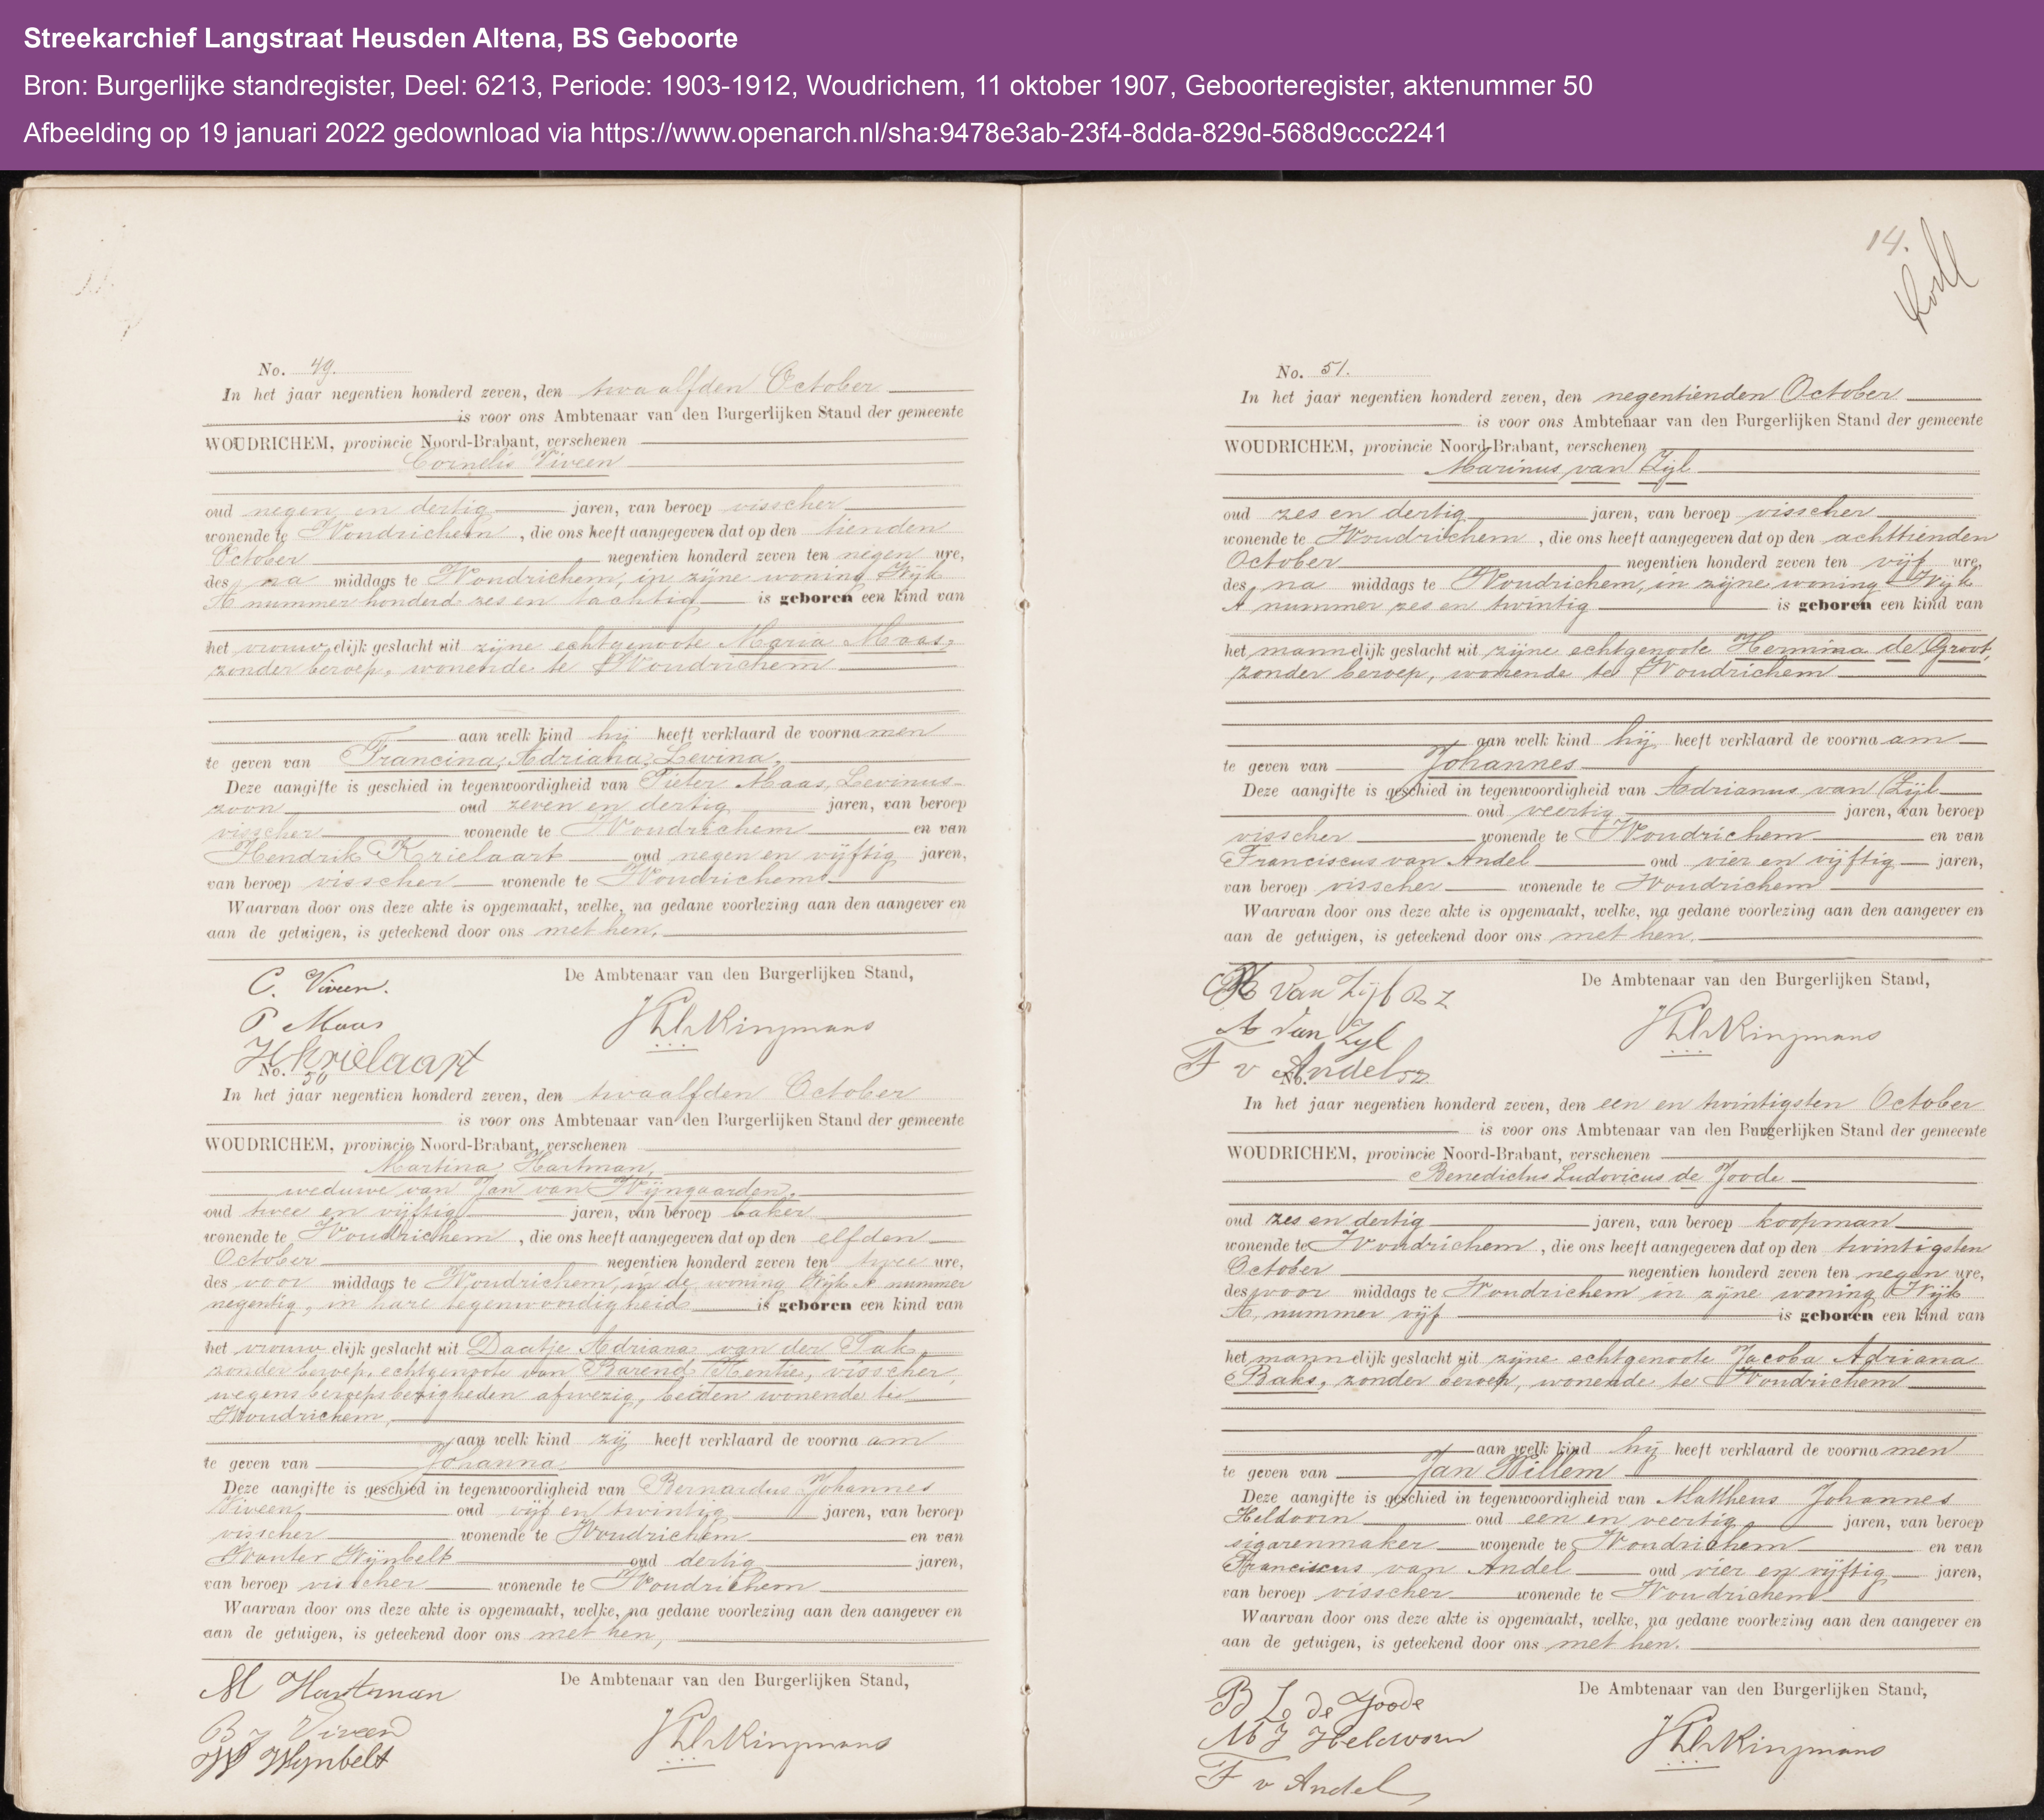 Streekarchief Langstraat Heusden Altena, BS Geboorte
Bron: Burgerlijke standregister, Deel: 6213, Periode: 1903-1912, Woudrichem, 11 oktober 1907, Geboorteregister, aktenummer 50
Afbeelding op 19 januari 2022 gedownload via https://www.openarch.nl/sha:9478e3ab-23f4-8dda-829d-568d9ccc2241
No. 49.
In het jaar negentien honderd zeven, den twaalfden October
is voor ons Ambtenaar van den Burgerlijken Stand der gemeente
WOUDRICHEM, provincie Noord-Brabant, verschenen
Cornelis Viveen
oud negen en dertig jaren, van beroep visscher
wonende te Woudrichem, die ons heeft aangegeven dat op den tienden
October negentien honderd zeven ten negen ure,
des na middags te Woudrichem, in zijne woning Wijk
A nummer honderd zes en tachtig is geboren een kind van
het vrouwelijk geslacht uit zijne echtgenoote Maria Maas,
zonder beroep, wonende te Woudrichem
aan welk kind hij heeft verklaard de voornamen
te geven van Francina, Adriana, Levina,
Deze aangifte is geschied in tegenwoordigheid van Pieter Maas, Levinus-
zoon oud zeven en dertig jaren, van beroep
visscher wonende te Woudrichem en van
Hendrik Krielaart oud negen en vijftig jaren,
van beroep visscher wonende te Woudrichem
Waarvan door ons deze akte is opgemaakt, welke, na gedane voorlezing aan den aangever en
aan de getuigen, is geteekend door ons met hen,
De Ambtenaar van den Burgerlijken Stand,
C. Viveen.
P Maas
H Krielaart
No. 50
In het jaar negentien honderd zeven, den twaalfden October
is voor ons Ambtenaar van den Burgerlijken Stand der gemeente
WOUDRICHEM, provincie Noord-Brabant, verschenen
Martina Hartman,
weduwe van Jan van Wijngaarden,
oud twee en vijftig jaren, van beroep baker
wonende te Woudrichem, die ons heeft aangegeven dat op den elfden
October negentien honderd zeven ten twee ure,
des voor middags te Woudrichem, in de woning Wijk A nummer
negentig, in hare tegenwoordigheid is geboren een kind van
het vrouwelijk geslacht uit Daatje Adriana van der Tak
zonder beroep, echtgenoote van Barend Kentie, visscher,
wegens beroepsbezigheden afwezig, beiden wonende te
Woudrichem,
aan welk kind zij heeft verklaard de voornaam
te geven van Johanna
Deze aangifte is geschied in tegenwoordigheid van Bernardus Johannes
Viveen, oud vijf en twintig jaren, van beroep
visscher wonende te Woudrichem en van
Wouter Wijnbelt oud dertig jaren,
van beroep visscher wonende te Woudrichem
Waarvan door ons deze akte is opgemaakt, welke, na gedane voorlezing aan den aangever en
aan de getuigen, is geteekend door ons met hen,
De Ambtenaar van den Burgerlijken Stand,
M Hartman
B J Viveen
W Wijnbelt
14.
No. 51.
In het jaar negentien honderd zeven, den negentienden October
is voor ons Ambtenaar van den Burgerlijken Stand der gemeente
WOUDRICHEM, provincie Noord-Brabant, verschenen
Marinus van Zijl
oud zes en dertig jaren, van beroep visscher
wonende te Woudrichem, die ons heeft aangegeven dat op den achttienden
October negentien honderd zeven ten vijf ure,
des na middags te Woudrichem, in zijne woning Wijk
A nummer zes en twintig is geboren een kind van
het mannelijk geslacht uit zijne echtgenoote Hermina de Groot,
zonder beroep, wonende te Woudrichem
aan welk kind hij heeft verklaard de voornaam
te geven van Johannes
Deze aangifte is geschied in tegenwoordigheid van Adrianus van Zijl
oud veertig jaren, van beroep
visscher wonende te Woudrichem en van
Franciscus van Andel oud vier en vijftig jaren,
van beroep visscher wonende te Woudrichem
Waarvan door ons deze akte is opgemaakt, welke, na gedane voorlezing aan den aangever en
aan de getuigen, is geteekend door ons met hen.
De Ambtenaar van den Burgerlijken Stand,
van Zijl
A van Zijl
F v Andel
No.
In het jaar negentien honderd zeven, den een en twintigsten October
is voor ons Ambtenaar van den Burgerlijken Stand der gemeente
WOUDRICHEM, provincie Noord-Brabant, verschenen
Benedictus Ludovicus de Joode
oud zes en dertig jaren, van beroep koopman
wonende te Woudrichem, die ons heeft aangegeven dat op den twintigsten
October negentien honderd zeven ten negen ure,
des voor middags te Woudrichem in zijne woning Wijk
A, nummer vijf is geboren een kind van
het mannelijk geslacht uit zijne echtgenoote Jacoba Adriana
Baks, zonder beroep, wonende te Woudrichem
aan welk kind hij heeft verklaard de voornamen
te geven van Jan Willem
Deze aangifte is geschied in tegenwoordigheid van Mattheus Johannes
Heldoorn oud een en veertig jaren, van beroep
sigarenmaker wonende te Woudrichem en van
Franciscus van Andel oud vier en vijftig jaren,
van beroep visscher wonende te Woudrichem
Waarvan door ons deze akte is opgemaakt, welke, na gedane voorlezing aan den aangever en
aan de getuigen, is geteekend door ons met hen.
De Ambtenaar van den Burgerlijken Stand,
B L de Joode
M J Heldoorn
F v Andel